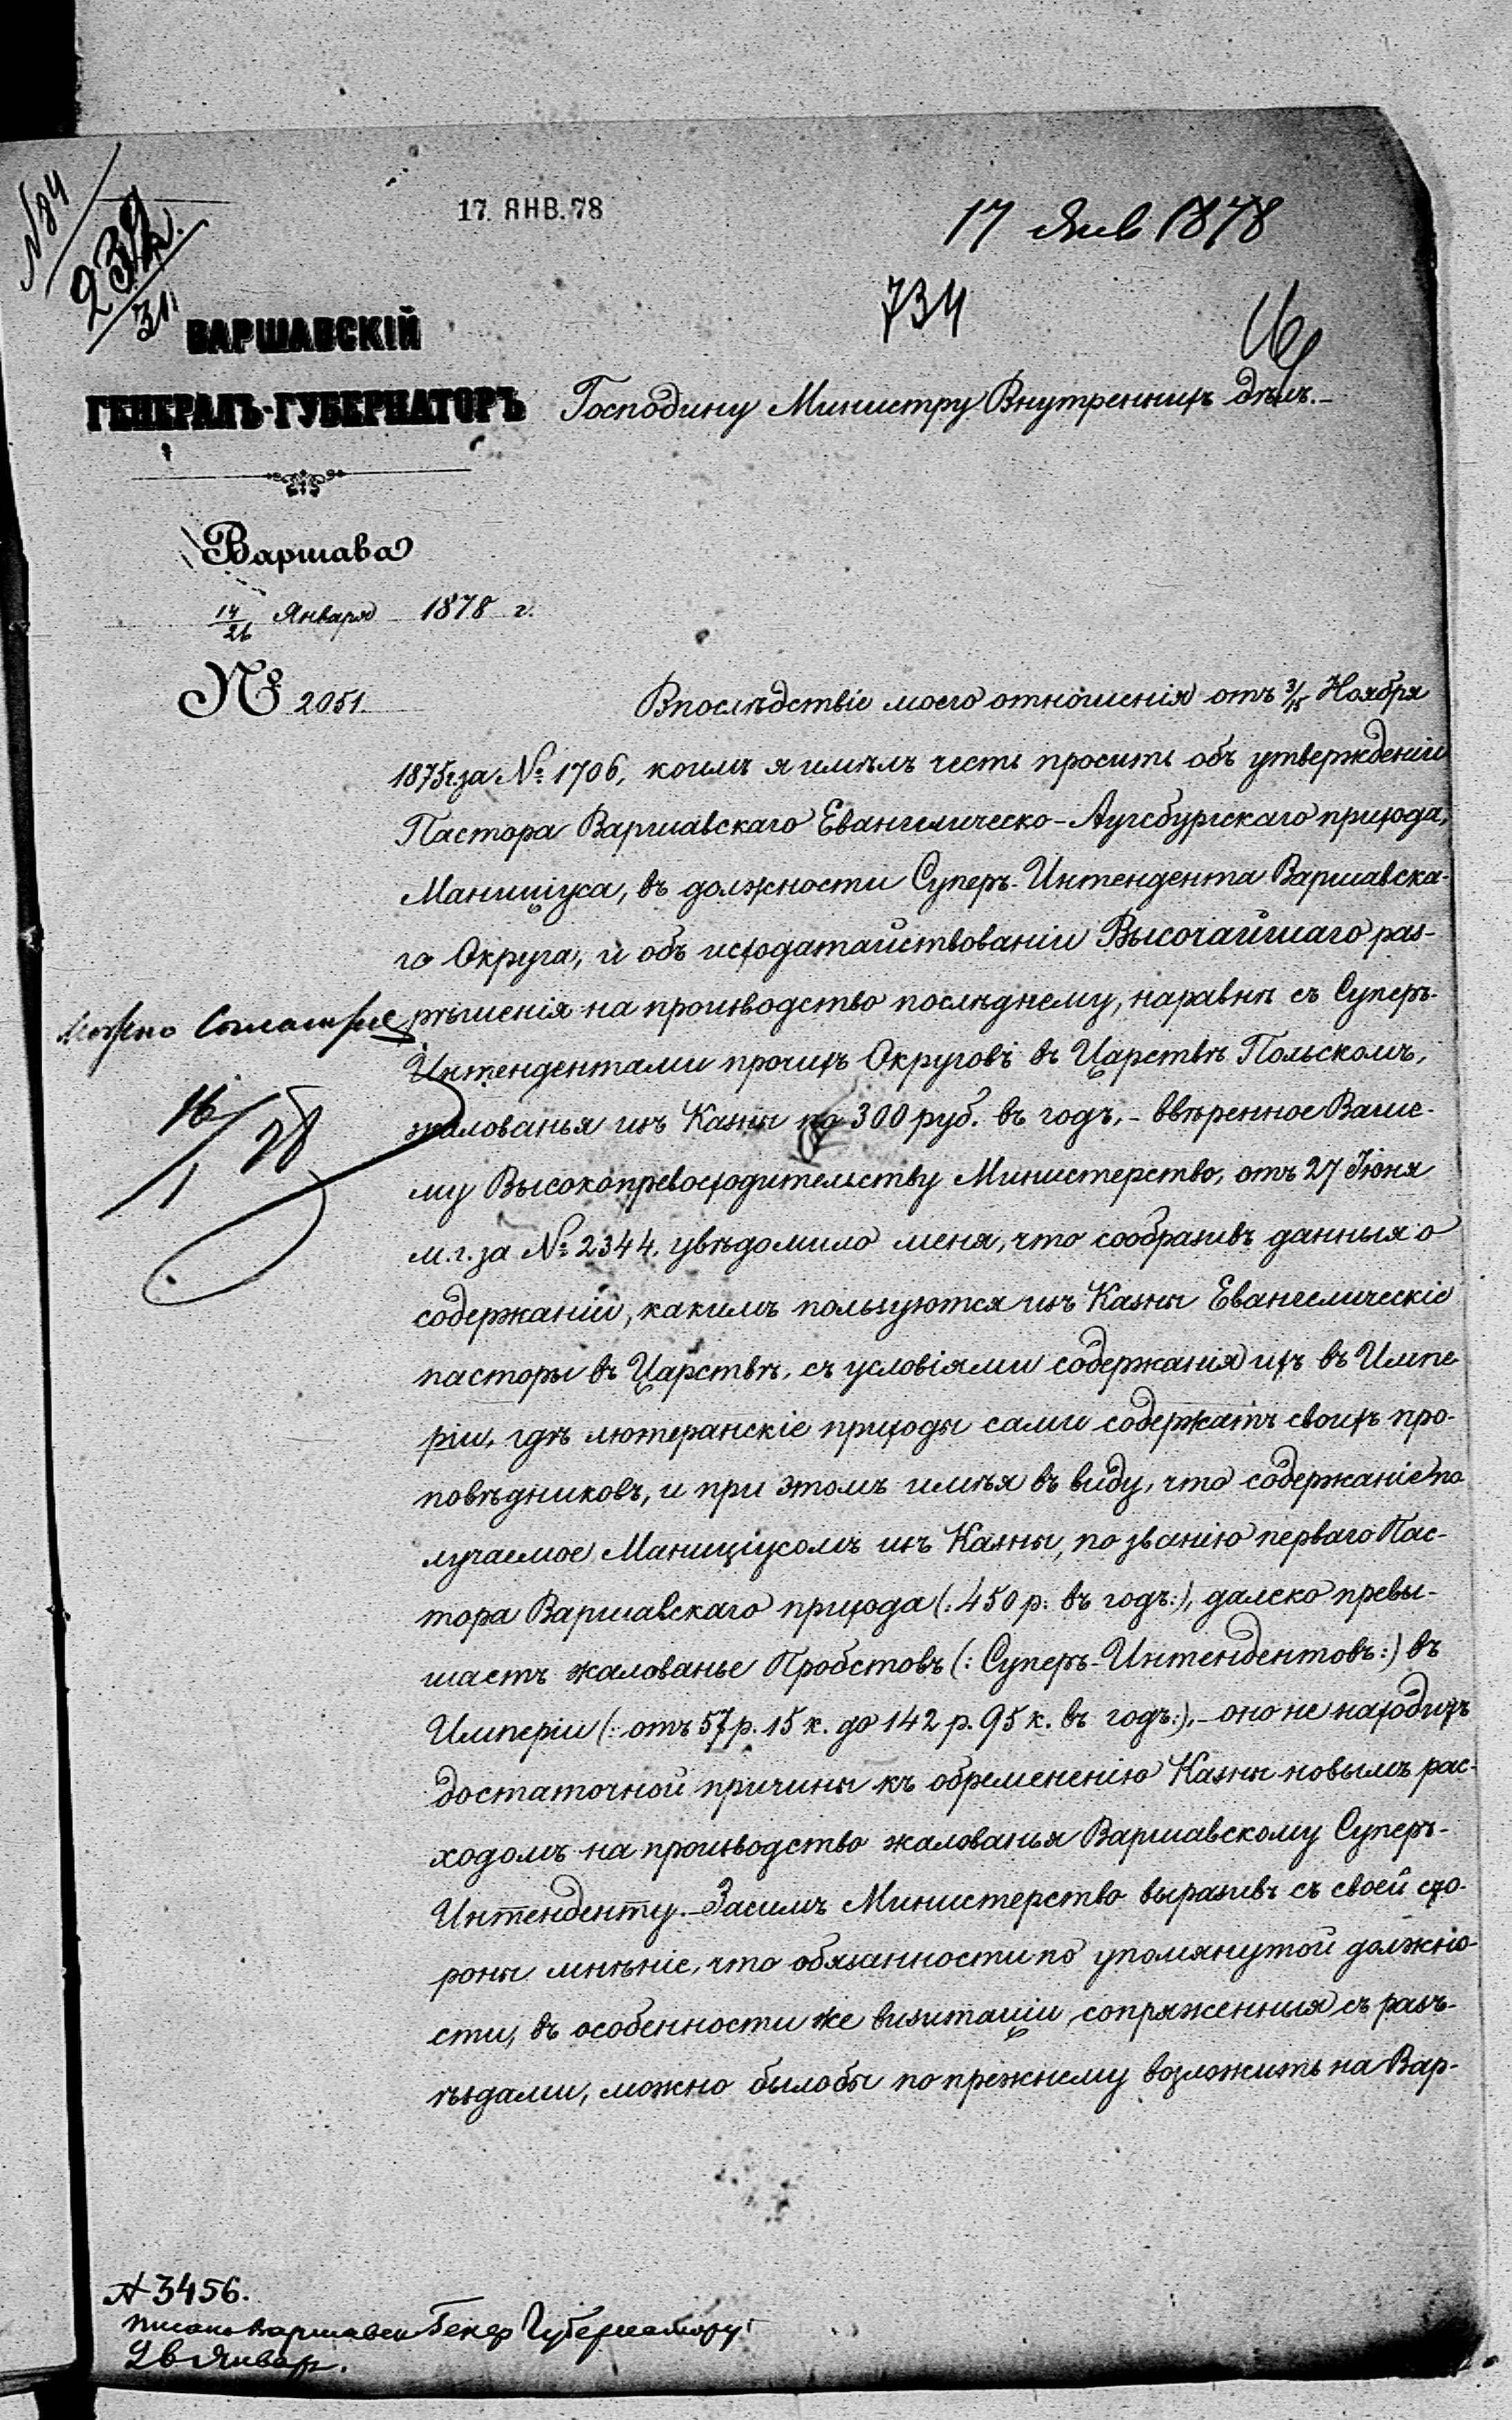 № 84
232.
31
17 ЯНВ. 78
17 Янв 1878
734
ВАРШАВСКІЙ
ГЕНЕРАЛЪ-ГУБЕРНАТОРЪ
Господину Министру Внутреннихъ Дѣлъ.-
Варшава
14/26 Января 1878 г.
№ 2051.
Впослѣдствіе моего отношенія отъ 3/15 Ноября
1875г. за № 1706, коимъ я имѣлъ честь просить объ утвержденіи
Пастора Варшавскаго Евангелическо-Аугсбургскаго прихода,
Маниціуса, въ должности Суперъ-Интендента Варшавска-
го Округа, и объ исходатайствованіи Высочайшаго раз-
рѣшенія на производство послѣднему, наравнѣ съ Суперъ-
Интендентами прочихъ Округовъ въ Царствѣ Польскомъ,
жалованья изъ Казны по 300 руб. въ годъ, - ввѣренное Ваше-
му Высокопревосходительству Министерство, отъ 27 Іюня
м. г. за № 2344, увѣдомило меня, что сообразивъ данныя о
содержаніи, какимъ пользуются изъ Казны Евангелическіе
пасторы въ Царствѣ, съ условіями содержанія ихъ въ Импе-
ріи, гдѣ лютеранскіе приходы сами содержатъ своихъ про-
повѣдниковъ, и при этомъ имѣя въ виду, что содержаніе по
лучаемое Маниціусомъ изъ Казны, по званію перваго Пас-
тора Варшавскаго прихода (: 450 р: въ годъ:), далеко превы-
шаетъ жалованье Пробстовъ (: Суперъ-Интендентовъ:) въ
Имперіи (: отъ 57 р. 15 к. до 142 р. 95 к. въ годъ:), - оно не находитъ
достаточной причины къ обремененію Казны новымъ рас-
ходомъ на производство жалованья Варшавскому Суперъ-
Интенденту. - Засимъ Министерство выразивъ съ своей сто-
роны мнѣніе, что обязанности по упомянутой должно-
сти, въ особенности же визитаціи, сопряженныя съ разъ-
ѣздами, можно было бы по прежнему возложить на Вар-
Можно
16/1 78
3456.
Писано Варшавск Генер Губернатору
Январ.